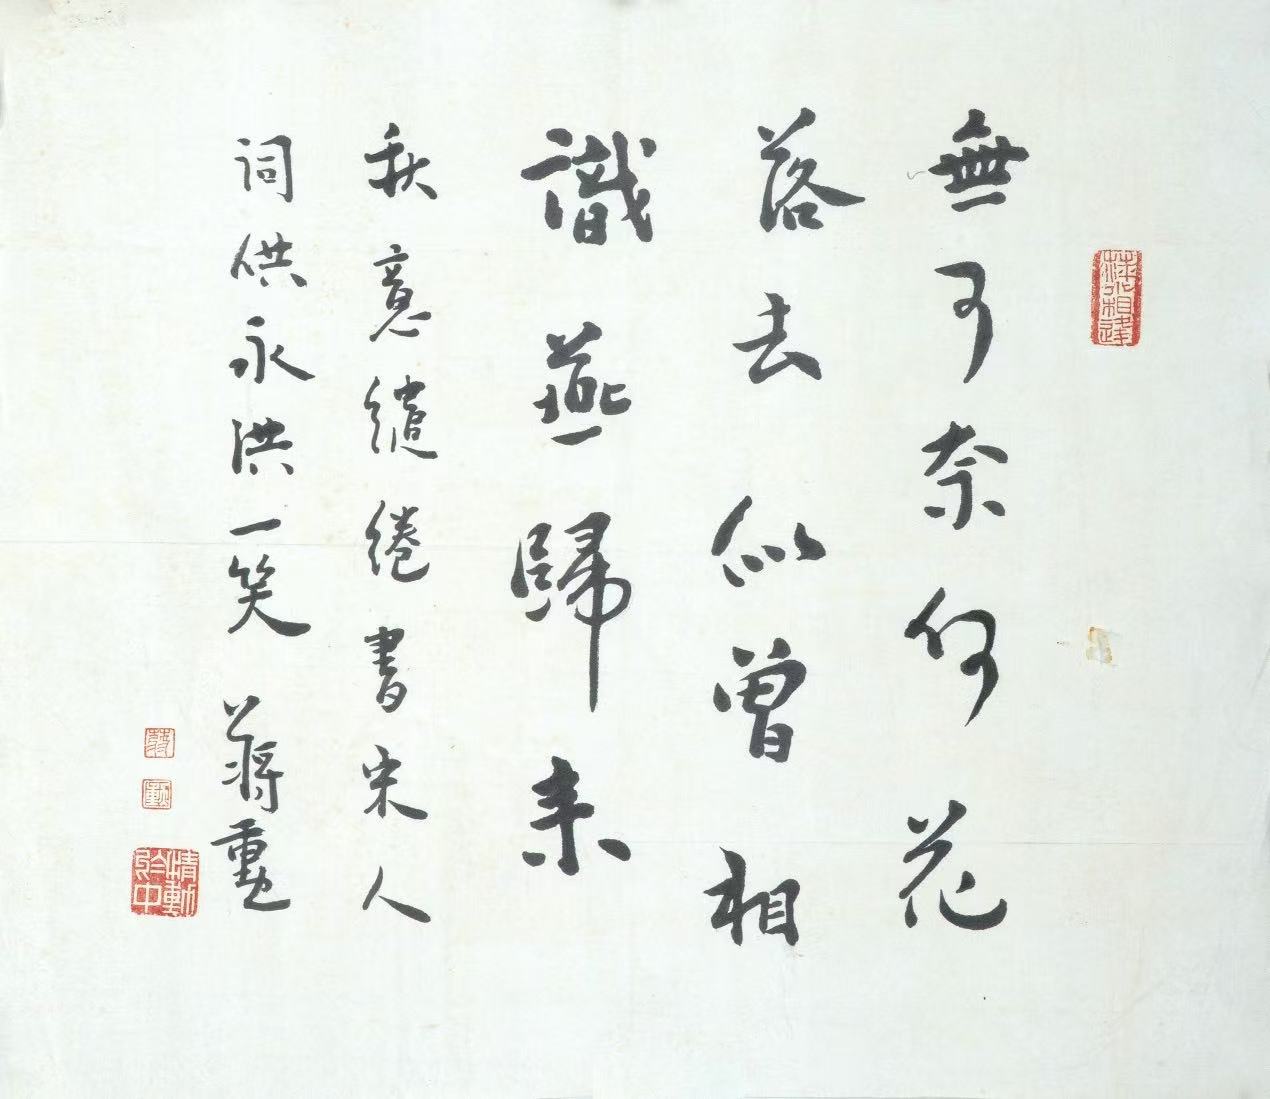 無可奈何花
落去似曾相
識燕歸来
秋意繾綣書宋人
詞供永洪一笑 蔣勳
萍水相逢
蔣
勳
情動於中